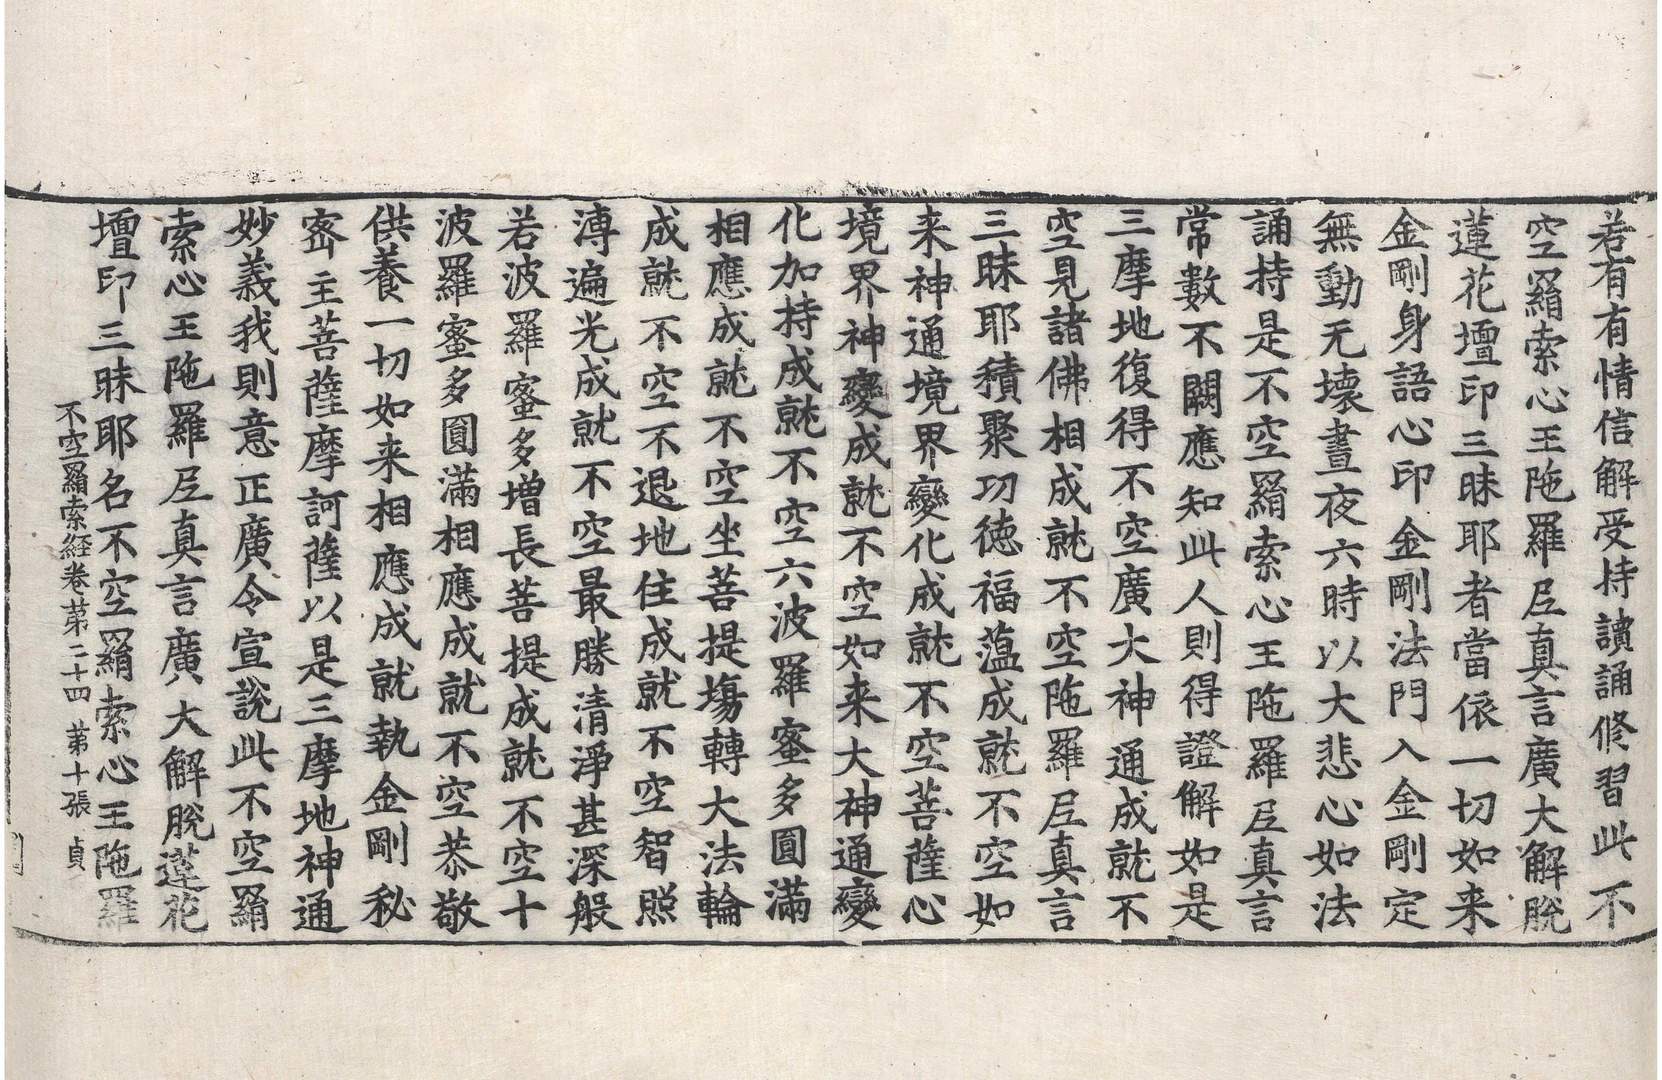 若有有情信解受持讀誦修習此不
空羂索心王陁羅尼真言廣大解脫
蓮花壇印三昧耶者當依一切如来
金剛身語心印金剛法門入金剛定
無動无壞晝夜六時以大悲心如法
誦持是不空羂索心王陁羅尼真言
常數不闕應知此人則得證解如是
三摩地復得不空廣大神通成就不
空見諸佛相成就不空陁羅尼真言
三昧耶積聚功德福蕰成就不空如
来神通境界變化成就不空菩薩心
境界神變成就不空如来大神通變
化加持成就不空六波羅蜜多圓滿
相應成就不空坐菩提塲轉大法輪
成就不空不退地住成就不空智照
溥遍光成就不空最勝清淨甚深般
若波羅蜜多增長菩提成就不空十
波羅蜜多圓滿相應成就不空恭敬
供養一切如来相應成就執金剛秘
宻主菩薩摩訶薩以是三摩地神通
妙義我則意正廣令宣說此不空羂
索心王陁羅尼真言廣大解脫蓮花
壇印三昧耶名不空羂索心王陁羅
不空羂索經卷苐二十四　苐十張　貞